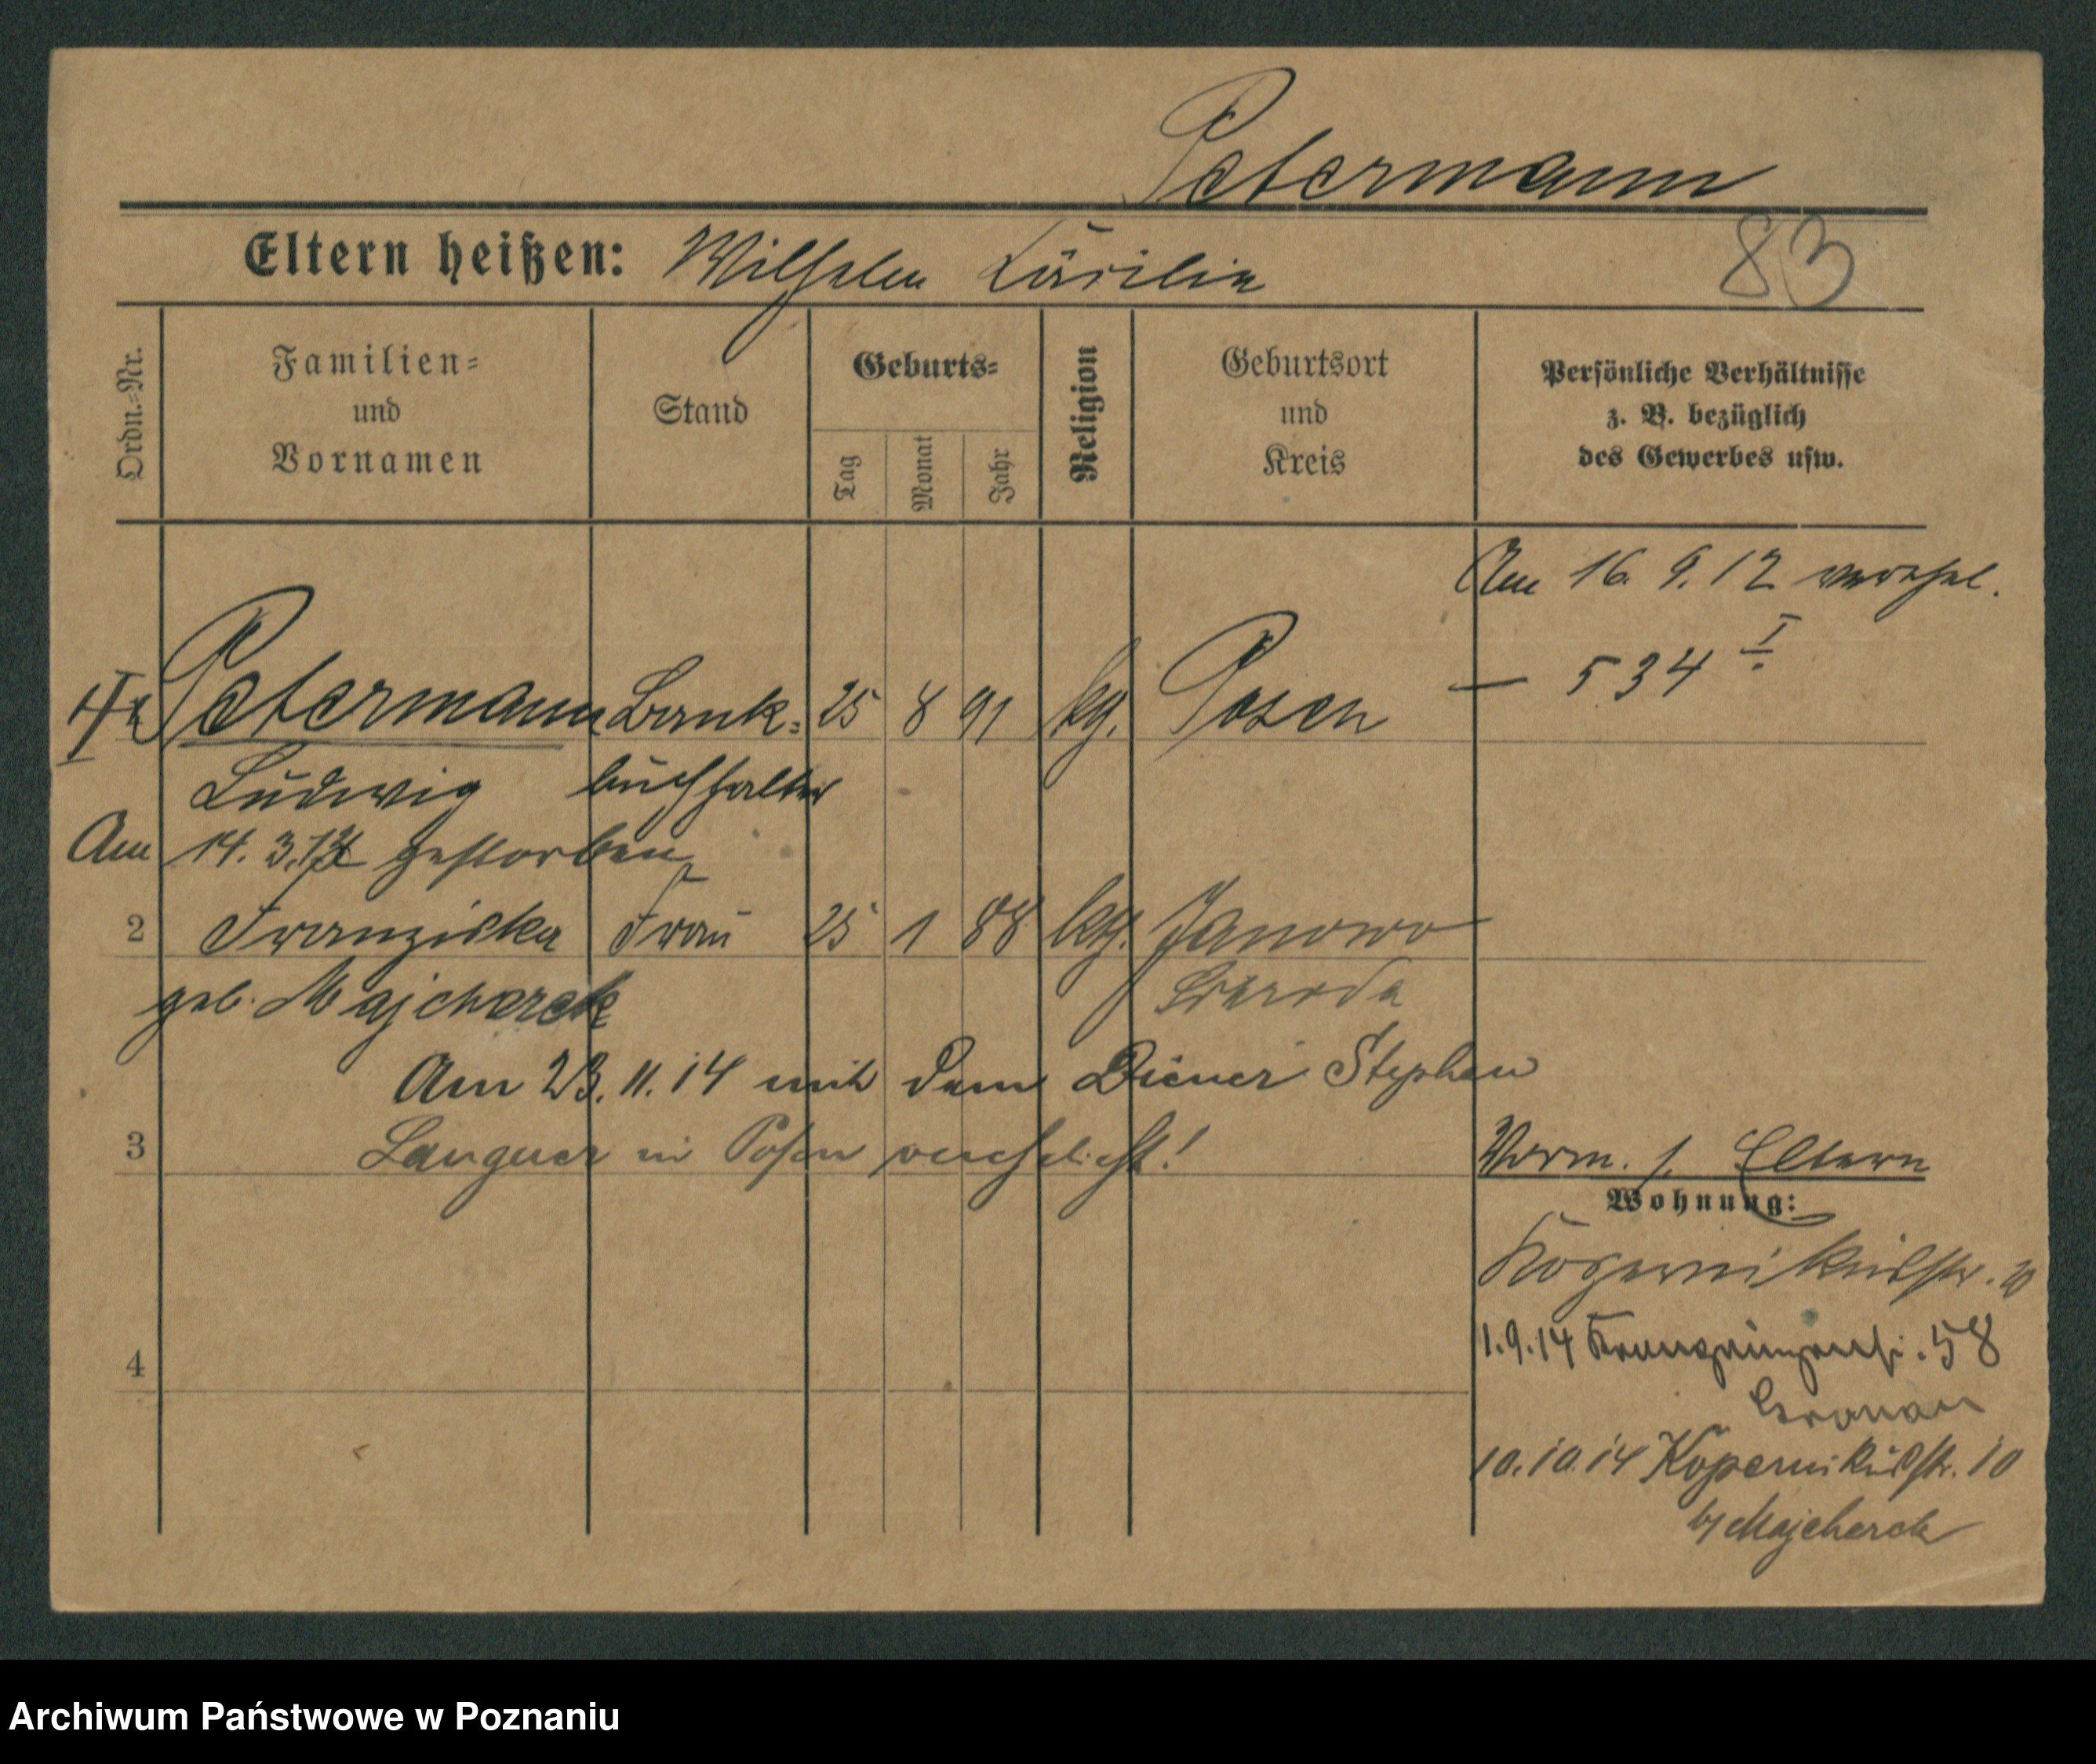 Petermann
83
Eltern heißen: Wilhelm Cäcilie
Ordn.-Nr.
Familien-
und
Vornamen
Stand
Geburts-
Tag
Monat
Jahr
Religion
Geburtsort
und
Kreis
Persönliche Verhältnisse
z. B. bezüglich
des Gewerbes usw.
Am 16. 9. 12 verehel.
— 534 I
Petermann Bank- 25 8 91 kg. Posen
Ludwig buchhalter
Am 14. 3. gestorben
2 Franziska Frau 25 1 88 kth. Janowo
geb. Majcherek Schroda
Am 23. 11. 14 mit dem Diener Stephan
3 Languer in Posen verehelicht!
Vorm. s. Eltern
Wohnung:
Kopernikusstr. 10
1.9.14 58
4
10.10.14 Kopernikusstr. 10
b/ Majcherek
Archiwum Państwowe w Poznaniu